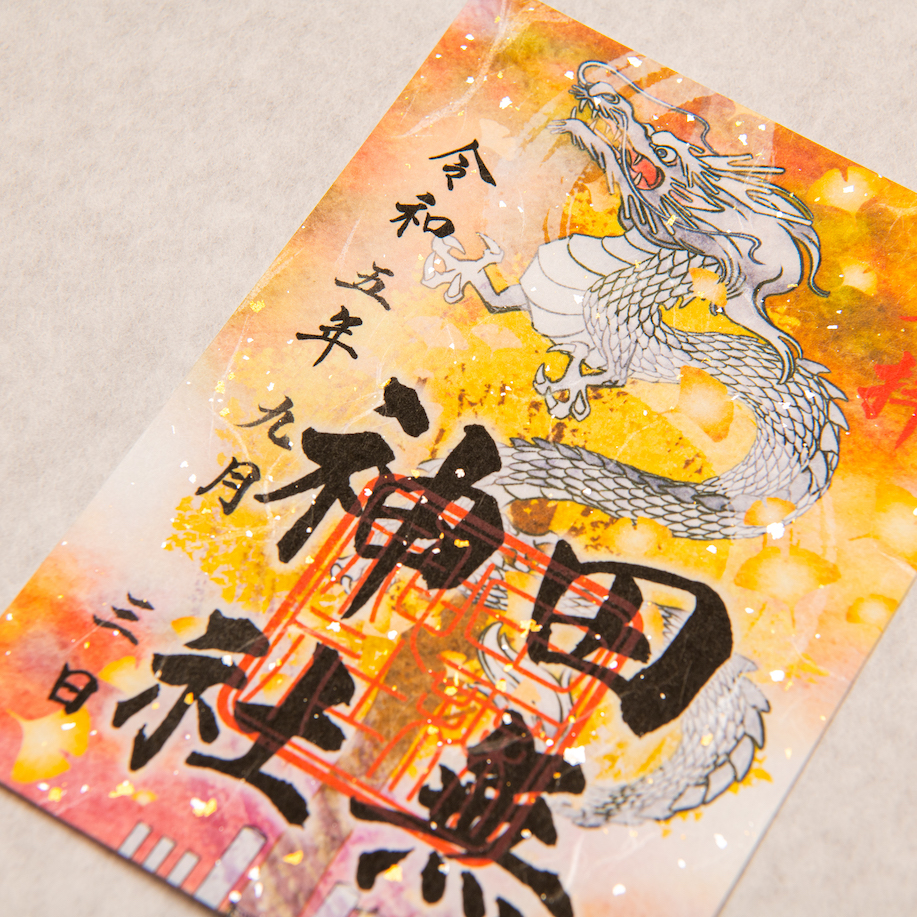 田無
神社
令和五年九月三日